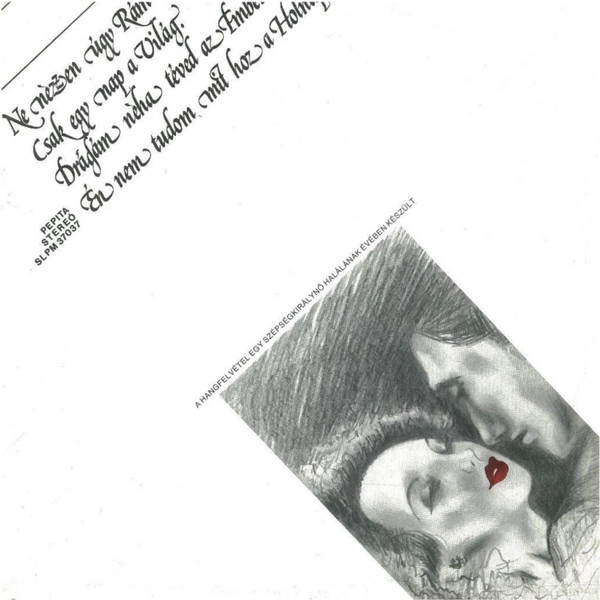 Ne nèzzen úgy Rám
Csak egy nap a Világ.
Drágám nèha tèved az Ember
Én nem tudom mit hoz a Holnap
PEPITA
STEREÓ
SLPM 37037
A HANGFELVÉTEL EGY SZÉPSÉGKIRÁLYNŐ HALÁLÁNAK ÉVÉBEN KÉSZÜLT